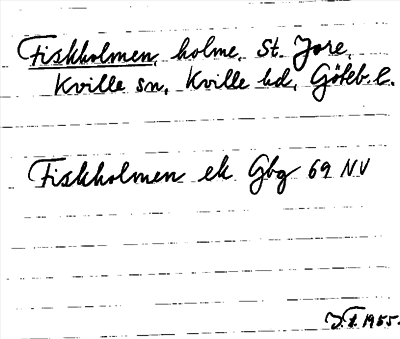 Fiskholmen, holme, St. Jore,
Kville sn, Kville hd, Göteb. l.
Fiskholmen ek Gbg 69 NV
1955.